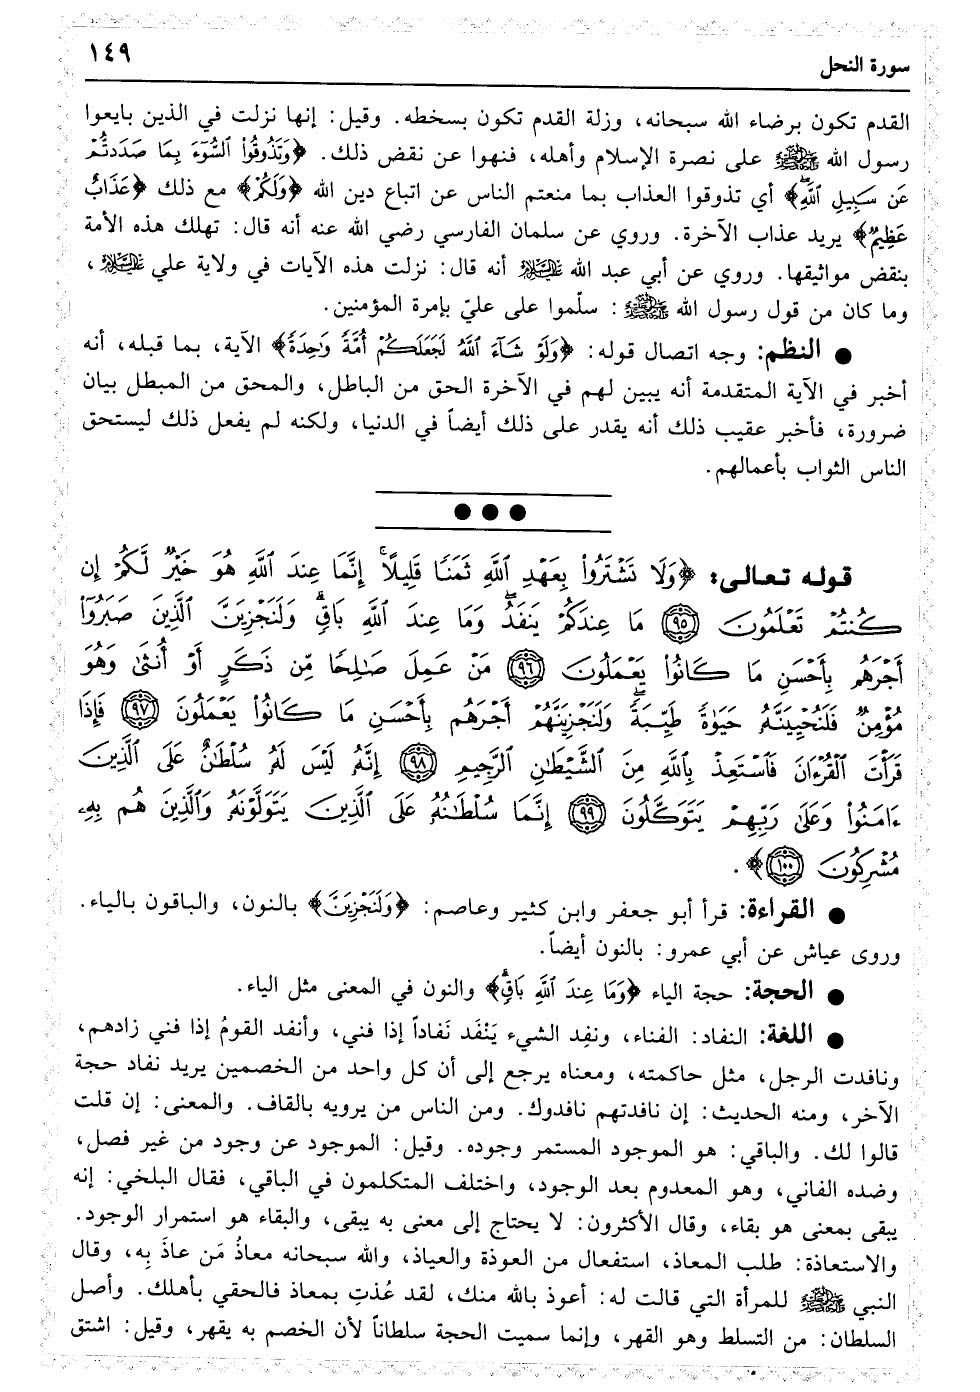 سورة النحل ١٤٩
القدم تكون برضاء الله سبحانه، وزلة القدم تكون بسخطه. وقيل: إنها نزلت في الذين بايعوا
رسول الله ﷺ على نصرة الإسلام وأهله، فنهوا عن نقض ذلك. ﴿وَتَذُوقُوا۟ ٱلسُّوٓءَ بِمَا صَدَدتُّمْ
عَن سَبِيلِ ٱللَّهِ﴾ أي تذوقوا العذاب بما منعتم الناس عن اتباع دين الله ﴿وَلَكُمْ﴾ مع ذلك ﴿عَذَابٌ
عَظِيمٌ﴾ يريد عذاب الآخرة. وروي عن سلمان الفارسي رضي الله عنه أنه قال: تهلك هذه الأمة
بنقض مواثيقها. وروي عن أبي عبد الله عليه السلام أنه قال: نزلت هذه الآيات في ولاية علي عليه السلام،
وما كان من قول رسول الله ﷺ: سلّموا على عليّ بإمرة المؤمنين.
● النظم: وجه اتصال قوله: ﴿وَلَوْ شَآءَ ٱللَّهُ لَجَعَلَكُمْ أُمَّةً وَٰحِدَةً﴾ الآية، بما قبله، أنه
أخبر في الآية المتقدمة أنه يبين لهم في الآخرة الحق من الباطل، والمحق من المبطل بيان
ضرورة، فأخبر عقيب ذلك أنه يقدر على ذلك أيضاً في الدنيا، ولكنه لم يفعل ذلك ليستحق
الناس الثواب بأعمالهم.
● ● ●
قوله تعالى: ﴿وَلَا تَشْتَرُوا۟ بِعَهْدِ ٱللَّهِ ثَمَنًا قَلِيلًا ۚ إِنَّمَا عِندَ ٱللَّهِ هُوَ خَيْرٌ لَّكُمْ إِن
كُنتُمْ تَعْلَمُونَ ٩٥ مَا عِندَكُمْ يَنفَدُ ۖ وَمَا عِندَ ٱللَّهِ بَاقٍ ۗ وَلَنَجْزِيَنَّ ٱلَّذِينَ صَبَرُوٓا۟
أَجْرَهُم بِأَحْسَنِ مَا كَانُوا۟ يَعْمَلُونَ ٩٦ مَنْ عَمِلَ صَٰلِحًا مِّن ذَكَرٍ أَوْ أُنثَىٰ وَهُوَ
مُؤْمِنٌ فَلَنُحْيِيَنَّهُۥ حَيَوٰةً طَيِّبَةً ۖ وَلَنَجْزِيَنَّهُمْ أَجْرَهُم بِأَحْسَنِ مَا كَانُوا۟ يَعْمَلُونَ ٩٧ فَإِذَا
قَرَأْتَ ٱلْقُرْءَانَ فَٱسْتَعِذْ بِٱللَّهِ مِنَ ٱلشَّيْطَٰنِ ٱلرَّجِيمِ ٩٨ إِنَّهُۥ لَيْسَ لَهُۥ سُلْطَٰنٌ عَلَى ٱلَّذِينَ
ءَامَنُوا۟ وَعَلَىٰ رَبِّهِمْ يَتَوَكَّلُونَ ٩٩ إِنَّمَا سُلْطَٰنُهُۥ عَلَى ٱلَّذِينَ يَتَوَلَّوْنَهُۥ وَٱلَّذِينَ هُم بِهِۦ
مُشْرِكُونَ ١٠٠﴾.
● القراءة: قرأ أبو جعفر وابن كثير وعاصم: ﴿وَلَنَجْزِيَنَّ﴾ بالنون، والباقون بالياء.
وروى عياش عن أبي عمرو: بالنون أيضاً.
● الحجة: حجة الياء ﴿وَمَا عِندَ ٱللَّهِ بَاقٍ ۗ﴾ والنون في المعنى مثل الياء.
● اللغة: النفاد: الفناء، ونفِد الشيء يَنْفَد نَفاداً إذا فني، وأنفد القومُ إذا فني زادهم،
ونافدت الرجل، مثل حاكمته، ومعناه يرجع إلى أن كل واحد من الخصمين يريد نفاد حجة
الآخر، ومنه الحديث: إن نافدتهم نافدوك. ومن الناس من يرويه بالقاف. والمعنى: إن قلت
قالوا لك. والباقي: هو الموجود المستمر وجوده. وقيل: الموجود عن وجود من غير فصل،
وضده الفاني، وهو المعدوم بعد الوجود، واختلف المتكلمون في الباقي، فقال البلخي: إنه
يبقى بمعنى هو بقاء، وقال الأكثرون: لا يحتاج إلى معنى به يبقى، والبقاء هو استمرار الوجود.
والاستعاذة: طلب المعاذ، استفعال من العوذة والعياذ، والله سبحانه معاذُ مَن عاذَ بِه، وقال
النبي ﷺ للمرأة التي قالت له: أعوذ بالله منك، لقد عُذتِ بمعاذ فالحقي بأهلك. وأصل
السلطان: من التسلط وهو القهر، وإنما سميت الحجة سلطاناً لأن الخصم به يقهر، وقيل: اشتق